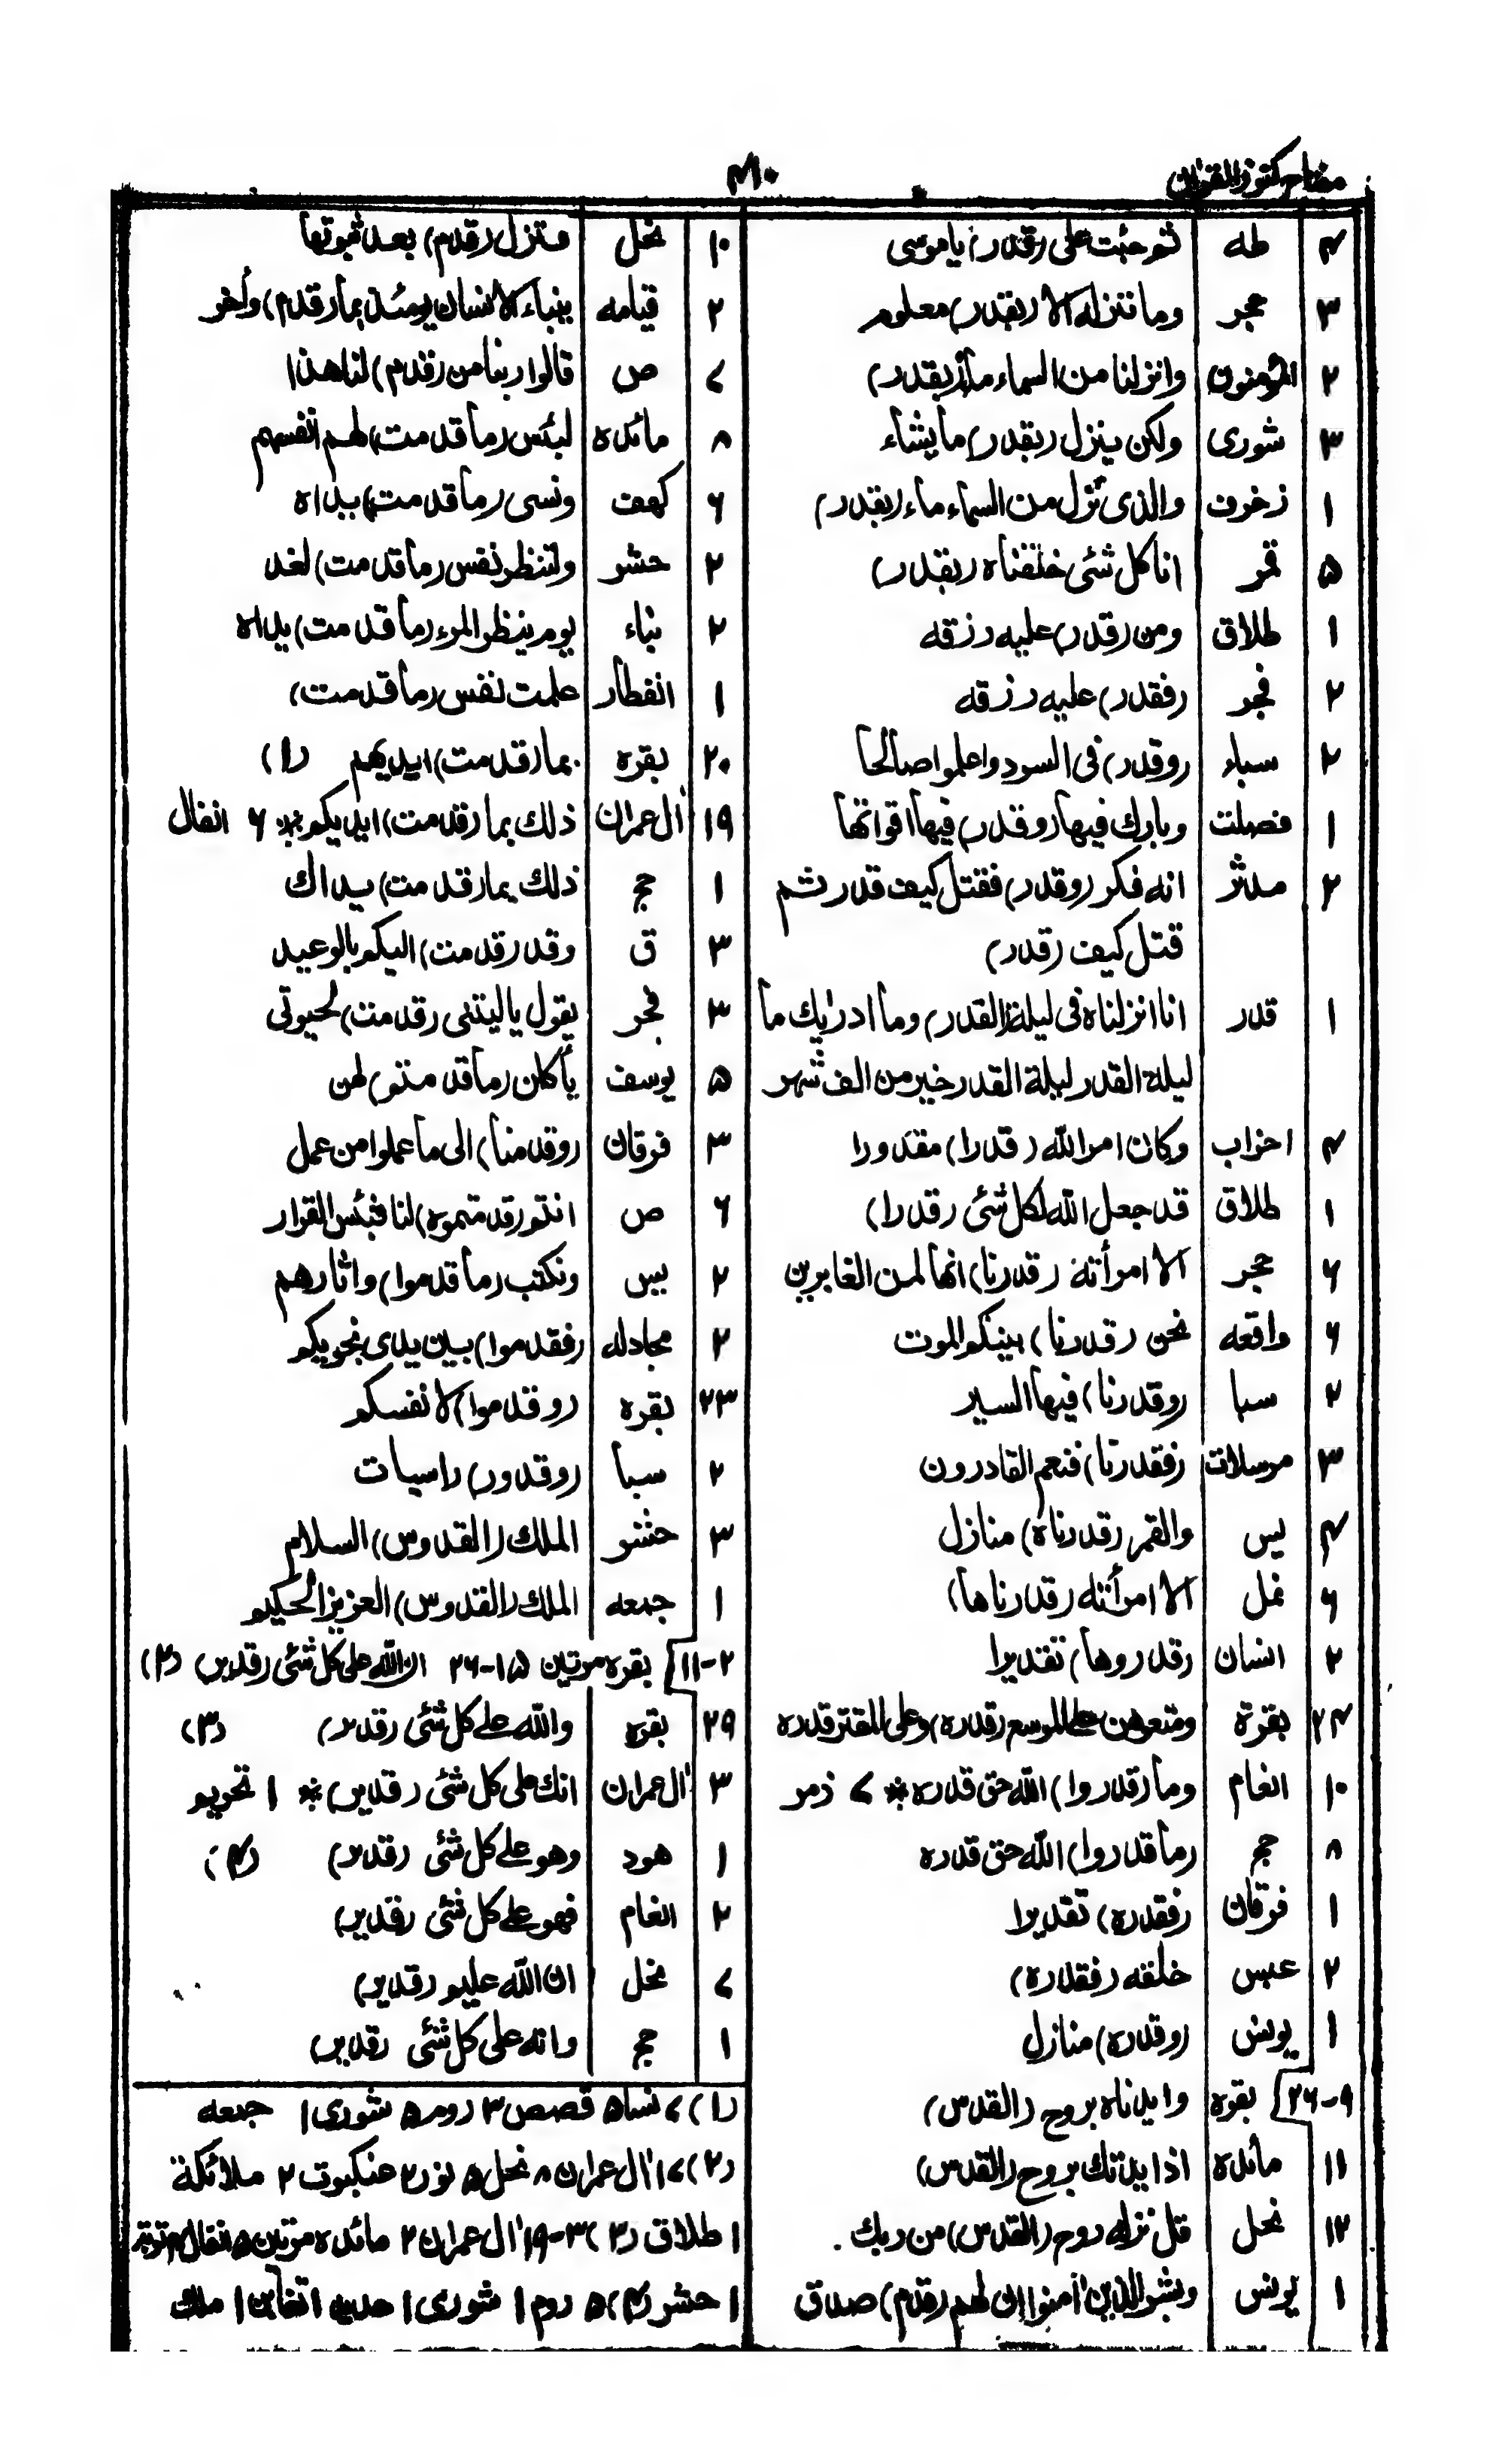 مفتاح كنوز القرآن
٣١٠
٤ طه ثم جئت على (قدر) يا موسى
٣ حجر وما ننزله الا (بقدر) معلوم
٢ المؤمنون وانزلنا من السماء ماء (بقدر)
٣ شورى ولكن ينزل (بقدر) ما يشاء
١ زخرف والذى نزل من السماء ماء (بقدر)
٥ قمر انا كل شئى خلقناه (بقدر)
١ طلاق ومن (قدر) عليه رزقه
٢ فجر (فقدر) عليه رزقه
٢ سباء (وقدر) فى السرد واعملوا صالحا
١ فصلت وبارك فيها (وقدر) فيها اقواتها
٢ مدثر انه فكر (وقدر) فقتل كيف قدر ثم
قتل كيف (قدر)
١ قدر انا انزلناه فى ليلة (القدر) وما ادرٰيك ما
ليلة القدر ليلة القدر خير من الف شهر
٤ احزاب وكان امر الله (قدرا) مقدورا
١ طلاق قد جعل الله لكل شئى (قدرا)
٦ حجر الا امرأته (قدرنا) انها لمن الغابرين
٦ واقعه نحن (قدرنا) بينكم الموت
٢ سبا (وقدرنا) فيها السير
٣ مرسلات (فقدرنا) فنعم القادرون
٤ يس والقمر (قدرناه) منازل
٦ نمل الا امرأته (قدرناها)
٢ انسان (قدروها) تقديرا
٢٤ بقرة ومتعوهن على الموسع (قدره) وعلى المقتر قدره
١٠ انعام وما (قدروا) الله حق قدره * ٧ زمر
٨ حج (ما قدروا) الله حق قدره
١ فرقان (فقدره) تقديرا
٢ عبس خلقه (فقدره)
١ يونس (وقدره) منازل
٩-٢٦] بقوه وايدناه بروح (القدس)
١١ مائده اذ ايدتك بروح (القدس)
١٢ نحل قل نزله روح (القدس) من ربك.
١ يونس وبشر الذين اٰمنوا ان لهم (قدم) صدق
١٠ نحل فتزل (قدم) بعد ثبوتها
٢ قيامه ينباء الانسان يومئذ بما (قدم) وأخر
٧ ص قالوا ربنا من (قدم) لنا هذا
٨ مائده لبئس (ما قدمت) لهم انفسهم
٦ كهف ونسى (ما قدمت) يداه
٢ حشر ولتنظر نفس (ما قدمت) لغد
٢ نباء يوم ينظر المرء (ما قدمت) يداه
١ انفطار علمت نفس (ما قدمت)
٢٠ بقره بما (قدمت) ايديهم (١)
١٩ اٰل عمران ذلك بما (قدمت) ايديكم * ٦ انفال
١ حج ذلك بما (قدمت) يداك
٣ ق وقد (قدمت) اليكم بالوعيد
٣ فجر يقول يا ليتنى (قدمت) لحيوتى
٥ يوسف يأكلن (ما قدمتم) لهن
٣ فرقان (وقدمنا) الى ما عملوا من عمل
٦ ص انتم (قدمتموه) لنا فبئس القرار
٢ يس ونكتب (ما قدموا) واثارهم
٢ مجادله (فقدموا) بين يدى نجويكم
٢٣ بقره (وقدموا) لانفسكم
٢ سبأ (وقدور) راسيات
٣ حشر الملك (القدوس) السلام
١ جمعه الملك (القدوس) العزيز الحكيم
٢-١١] بقره مرتين ١٥-٢٦ ان الله على كل شئى (قدير) (٢)
٢٩ بقره والله على كل شئى (قدير) (٣)
٣ اٰل عمران انك على كل شئى (قدير) * ١ تحريم
١ هود وهو على كل شئى (قدير) (٤)
٢ انعام فهو على كل شئى (قدير)
٧ نحل ان الله عليم (قدير)
١ حج وانه على كل شئى (قدير)
(١) ٧ نسا ٥ قصص ٣ روم ٥ شورى ١ جمعه
(٢) ١٧ اٰل عمران ٨ نحل ٥ نور ٢ عنكبوت ٢ ملائكة
١ طلاق (٣) ٣-١٩ اٰل عمران ٢ مائده مرتين ٥ انفال ٦ توبة
١ حشر (٤) ٥ روم ١ شورى ١ حديد ١ تغابن ١ ملك